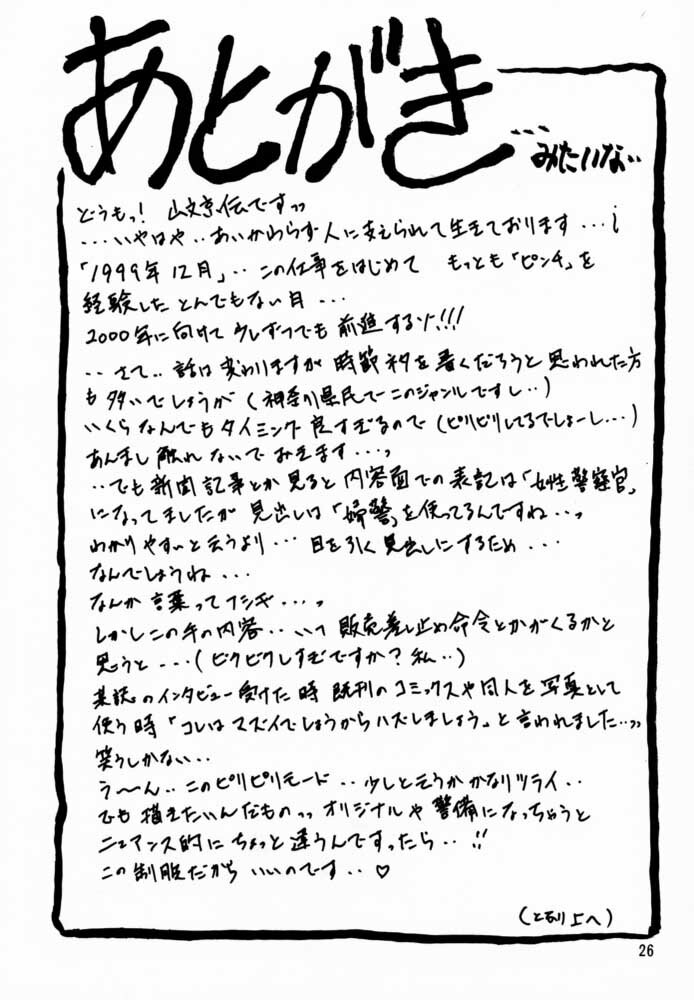 あとがき
…みたいな…
どうもっ! 山文京伝ですッ
…いやはや‥あいかわらず人に支えられて生きております…;
「1999年12月」‥この仕事をはじめて もっとも「ピンチ」を
経験したとんでもない月…
2000年に向けて少しずつでも前進するゾ!!!
‥さて‥話は変わりますが時節ネタを書くだろうと思われた方
も多いでしょうが(神奈川県民でこのジャンルですし‥)
いくらなんでもタイミング良すぎるので(ピリピリしてるでしょーし…)
あんまし触れないでおきます…っ
‥でも新聞記事とか見ると内容面での表記は「女性警察官」
になってましたが見出しは「婦警」を使ってるんですね…っ
わかりやすいと云うより…目を引く見出しにするため…
なんでしょうね…
なんか言葉ってフシギ…っ
しかしこの手の内容‥いつ販売差し止め命令とかがくるかと
思うと…(ビクビクしすぎですか?私‥)
某誌のインタビュー受けた時既刊のコミックスや同人を写真として
使う時「コレはマズイでしょうからハズしましょう」と言われました…ッ
笑うしかない‥
う〜ん‥このピリピリモード‥少しと云うかかなりツライ‥
でも描きたいんだものッ オリジナルや警備になっちゃうと
ニュアンス的にちょっと違うんですったら‥!!
この制服だから いいのです‥♡
(となり上へ)
26